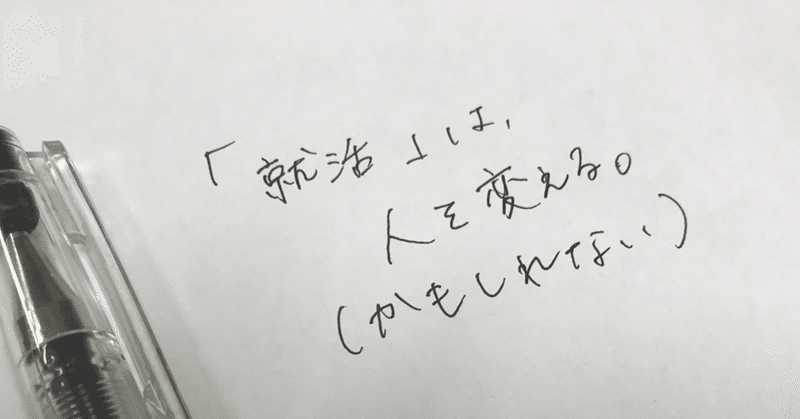 「就活」は、
人を変える。
(かもしれない)